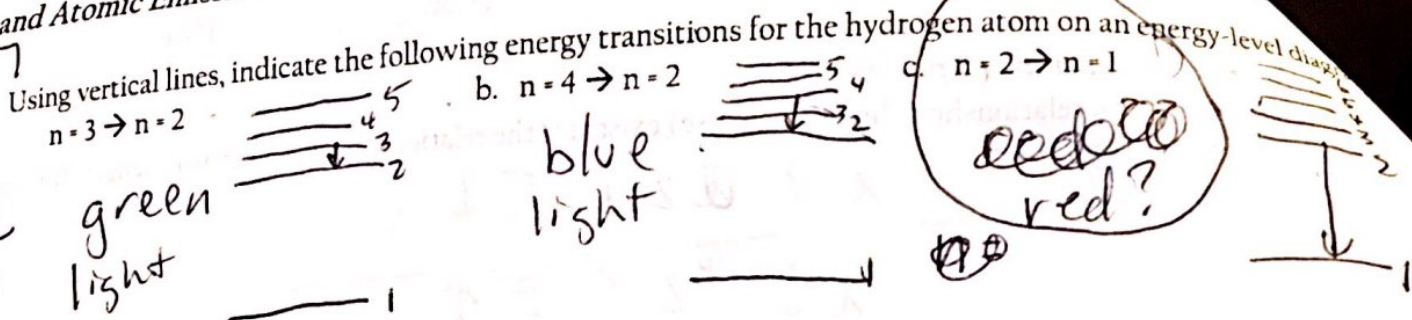 and Atomic
7
Using vertical lines, indicate the following energy transitions for the hydrogen atom on an energy-level
n = 3 → n = 2
5
4
3
2
1
green
light
b. n = 4 → n = 2
5
4
3
2
1
blue
light
c. n = 2 → n = 1
red?
2
1